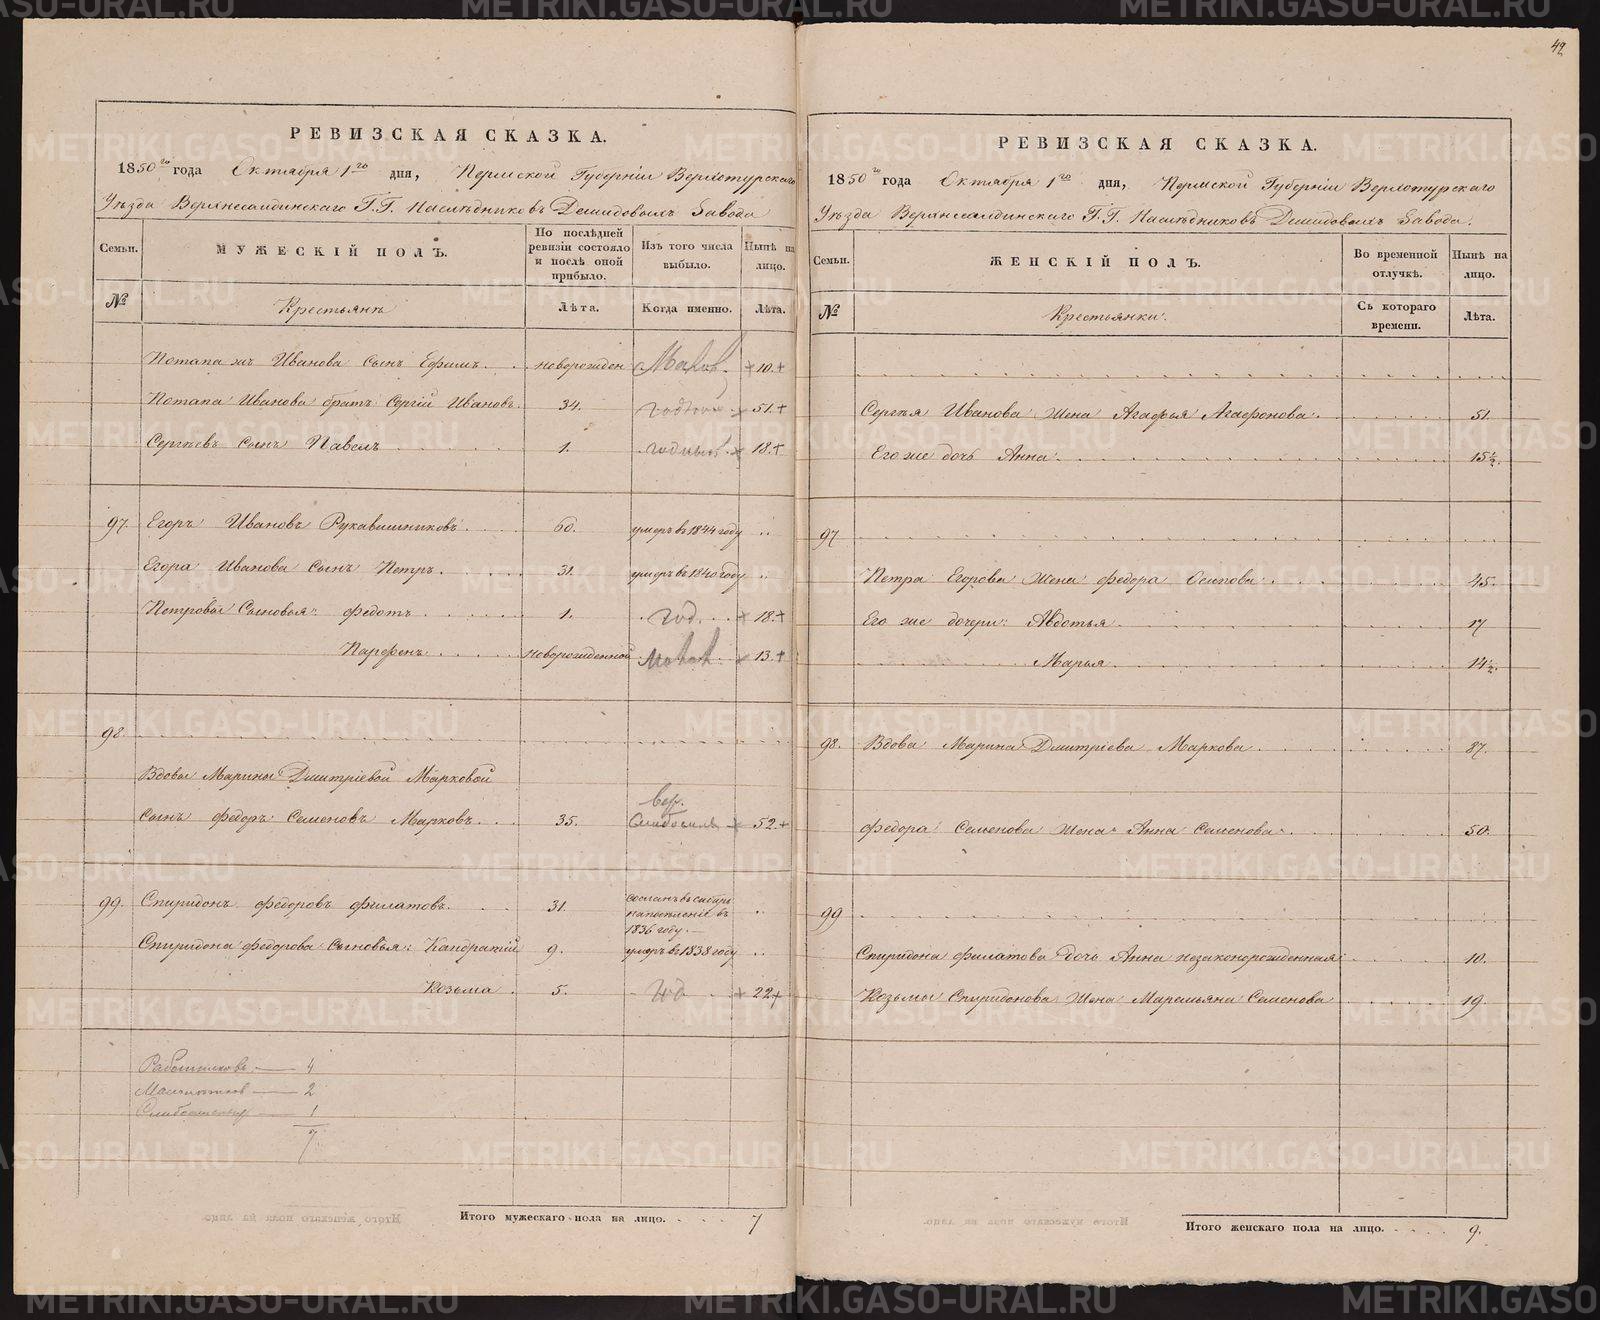 42
РЕВИЗСКАЯ СКАЗКА.
1850го года Октября 1го дня, Пермской Губерніи Верхотурскаго
Уѣзда Верхнесалдинскаго Г.Г. Наслѣдниковъ Демидовыхъ Завода
Семьи. МУЖЕСКІЙ ПОЛЪ. По послѣдней ревизіи состояло и послѣ оной прибыло. Изъ того числа выбыло. Нынѣ на лицо.
№ Крестьянъ Лѣта. Когда именно. Лѣта.
Потапа жъ Иванова сынъ Ефимъ новорожден 10.
Потапа Иванова братъ Сергій Ивановъ 34. годный 51.
Сергѣевъ сынъ Павелъ 1. годный 18.
97. Егоръ Ивановъ Рукавишниковъ 60. умеръ въ 1844 году
Егора Иванова сынъ Петръ 31. умеръ въ 1840 году
Петровы сыновья: Федотъ 1. год. 18.
Парфенъ новорожденной 13.
98.
Вдовы Марины Дмитріевой Марковой
сынъ Федоръ Семеновъ Марковъ 35. 52.
99. Спиридонъ Федоровъ Филатовъ 31. сосланъ въ сибирь
на поселеніе въ
1836 году.
Спиридона Федорова сыновья: Кандратій 9. умеръ въ 1838 году
Козьма 5. год 22
Работниковъ — 4
— 2
— 1
7.
Итого мужескаго пола на лицо. 7
РЕВИЗСКАЯ СКАЗКА.
1850го года Октября 1го дня, Пермской Губерніи Верхотурскаго
Уѣзда Верхнесалдинскаго Г.Г. Наслѣдниковъ Демидовыхъ Завода.
Семьи. ЖЕНСКІЙ ПОЛЪ. Во временной отлучкѣ. Нынѣ на лицо.
№ Крестьянки. Съ котораго времени. Лѣта.
Сергѣя Иванова жена Агафья Агафонова 51.
Его же дочь Анна 15½.
97.
Петра Егорова жена Федора Осипова 45.
Его же дочери: Авдотья 17
Марья 14½.
98. Вдова Марина Дмитріева Маркова 87.
Федора Семенова жена Анна Семенова 50.
99
Спиридона Филатова дочь Анна незаконорожденная 10.
Козьмы Спиридонова жена Маремьяна Семенова 19.
Итого женскаго пола на лицо. 9.
METRIKI.GASO-URAL.RU